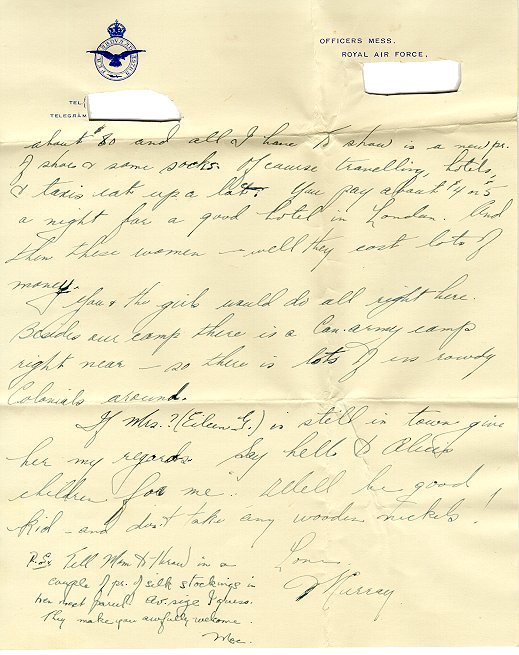 OFFICERS MESS,
ROYAL AIR FORCE,
TEL:
TELEGRAM
about $80 and all I have to show is a new pr.
of shoes & some socks. Of course travelling, hotels,
& taxis eat up a lot. You pay about $4 or 5
a night for a good hotel in London. And
then these women – well they cost lots of
money.
You & the girls would do all right here.
Besides our camp there is a Can. army camp
right near – so there is lots of us rowdy
Colonials around.
If Mrs. ? (Eileen G.) is still in town give
her my regards. Say hello to
children for me". Well be good
kid – and don't take any wooden nickels!
Love
Murray.
P.S. Tell Mom to throw in a
couple of pr. of silk stockings in
her next parcel. Av. size I guess.
They make you awfully welcome.